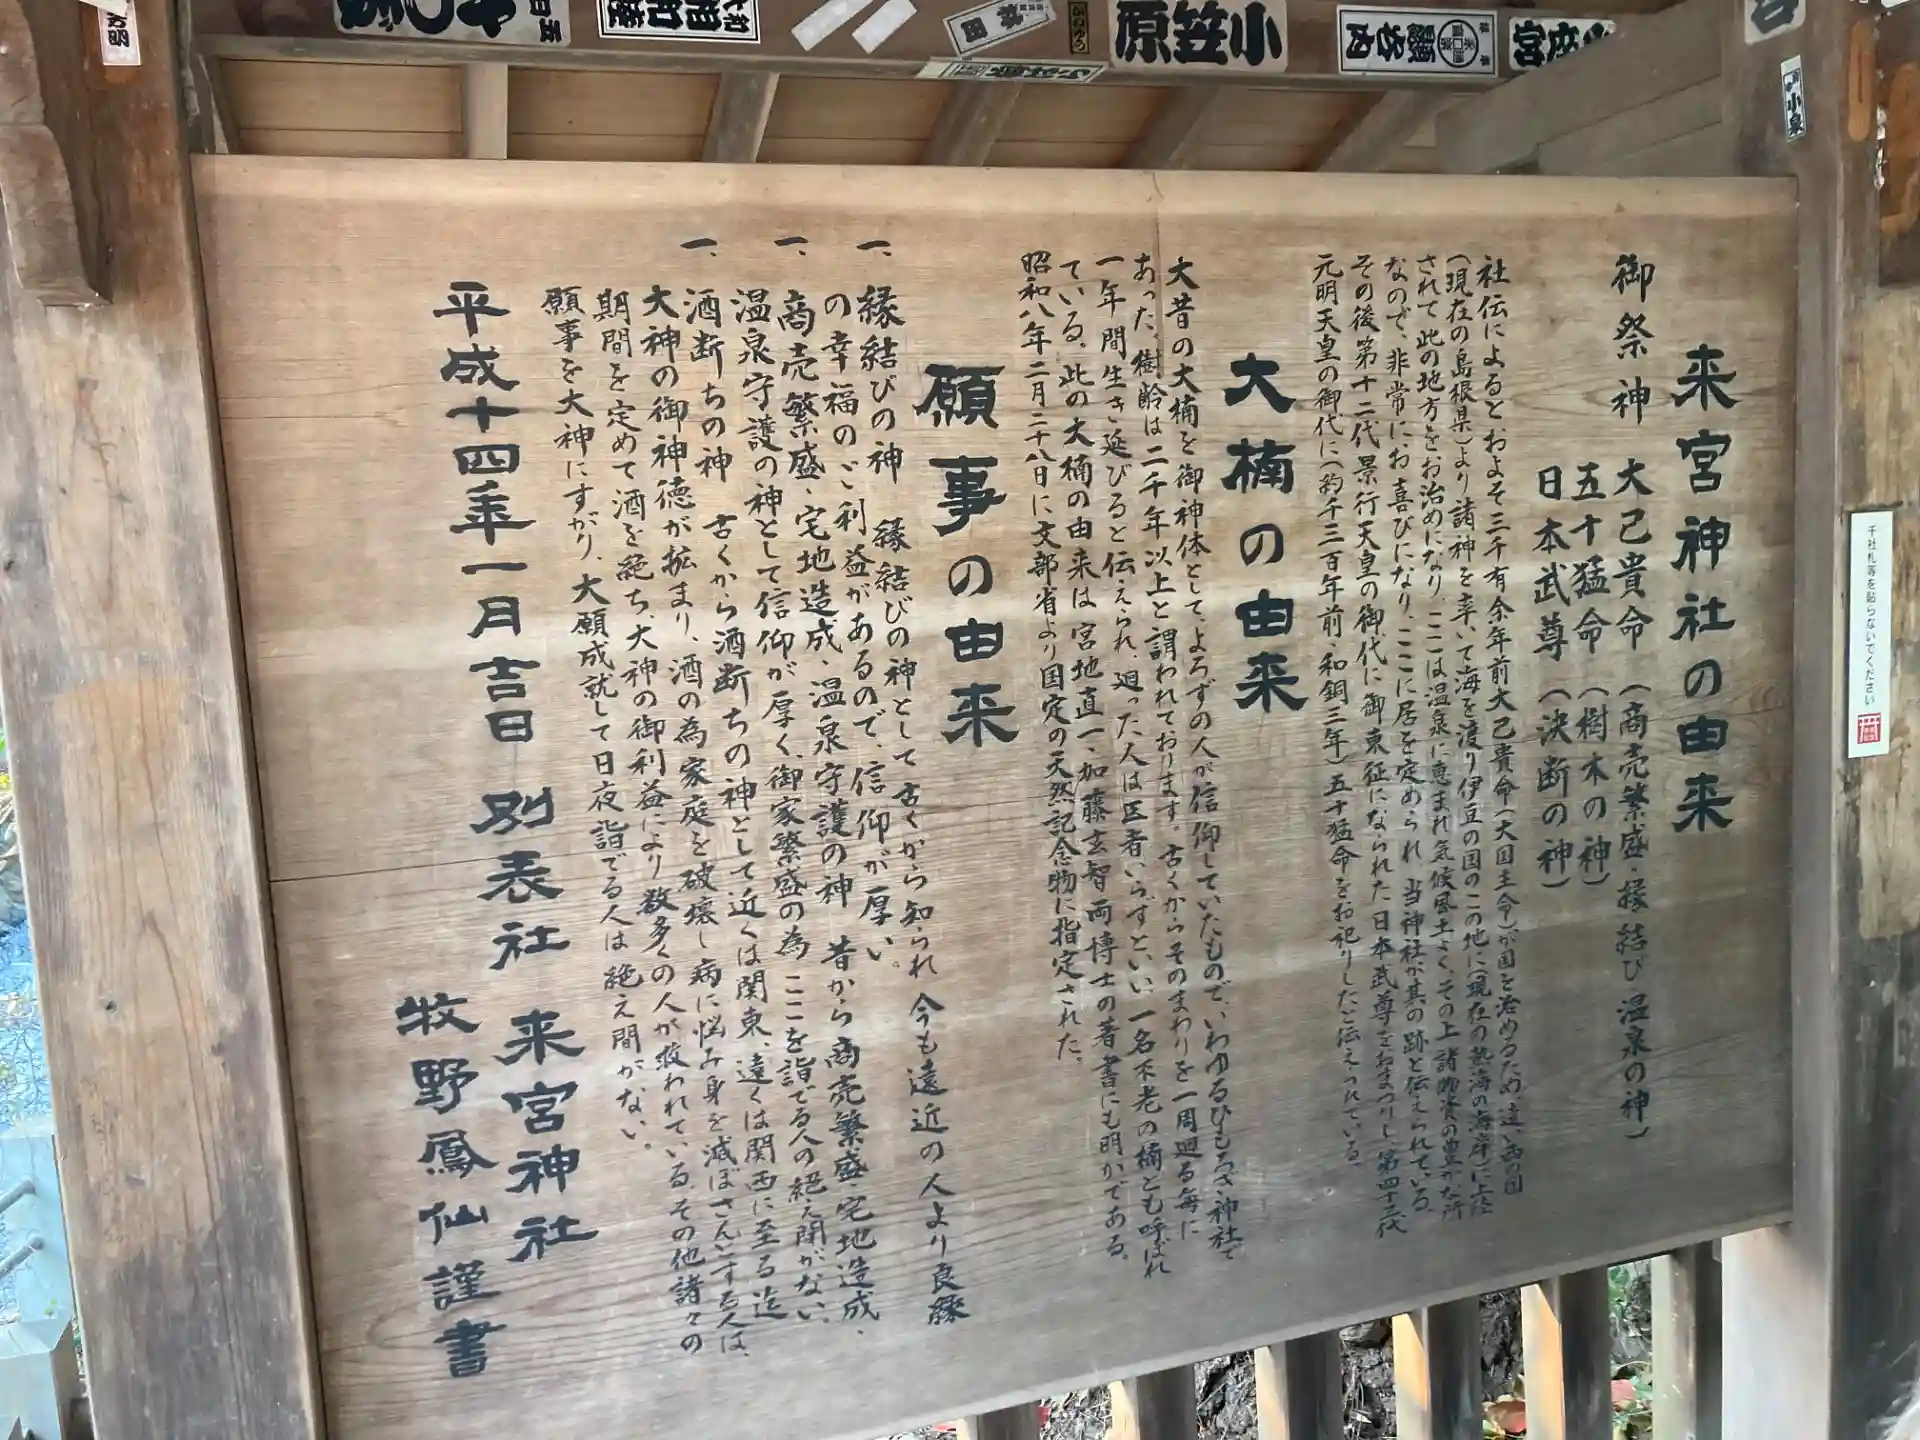 来宮神社の由来
御祭神 大己貴命(商売繁盛・縁結び 温泉の神)
五十猛命(樹木の神)
日本武尊(決断の神)
社伝によるとおよそ三千有余年前大己貴命(大国主命)が国を治めるため、遠い西の国
(現在の島根県)より諸神を率いて海を渡り伊豆の国のこの地に(現在の熱海の海岸)に上陸
されて此の地方をお治めになり、ここは温泉に恵まれ気候風土よく、その上諸物資の豊かな所
なので、非常にお喜びになり、ここに居を定められ、当神社が其の跡と伝えられている。
その後第十二代景行天皇の御代に御東征になられた日本武尊をおまつりし、第四十三代
元明天皇の御代に(約千三百年前、和銅三年)五十猛命をお祀りしたと伝えられている。
大楠の由来
大昔の大楠を御神体として、よろずの人が信仰していたもので、いわゆるひもろぎ神社で
あった。樹齢は二千年以上と謂われております。古くからそのまわりを一周廻る毎に
一年間生き延びると伝えられ、廻った人は医者いらずといい、一名不老の楠とも呼ばれ
ている。此の大楠の由来は宮地直一、加藤玄智両博士の著書にも明かである。
昭和八年二月二十八日に文部省より国定の天然記念物に指定された。
願事の由来
一、縁結びの神 縁結びの神として古くから知られ 今も遠近の人より良縁
の幸福のご利益があるので、信仰が厚い。
一、商売繁盛、宅地造成、温泉守護の神 昔から商売繁盛 宅地造成、
温泉守護の神として信仰が厚く、御家繁盛の為 ここを詣でる人の絶え間がない。
一、酒断ちの神 古くから酒断ちの神として近くは関東、遠くは関西に至る迄
大神の御神徳が拡まり、酒の為家庭を破壊し病に悩み身を滅ぼさんとする人は、
期間を定めて酒を絶ち、大神の御利益により数多くの人が救われている。その他諸々の
願事を大神にすがり、大願成就して日夜詣でる人は絶え間がない。
平成十四年一月吉日 別表社 来宮神社
牧野鳳仙謹書
千社札等を貼らないでください
小笠原
小泉